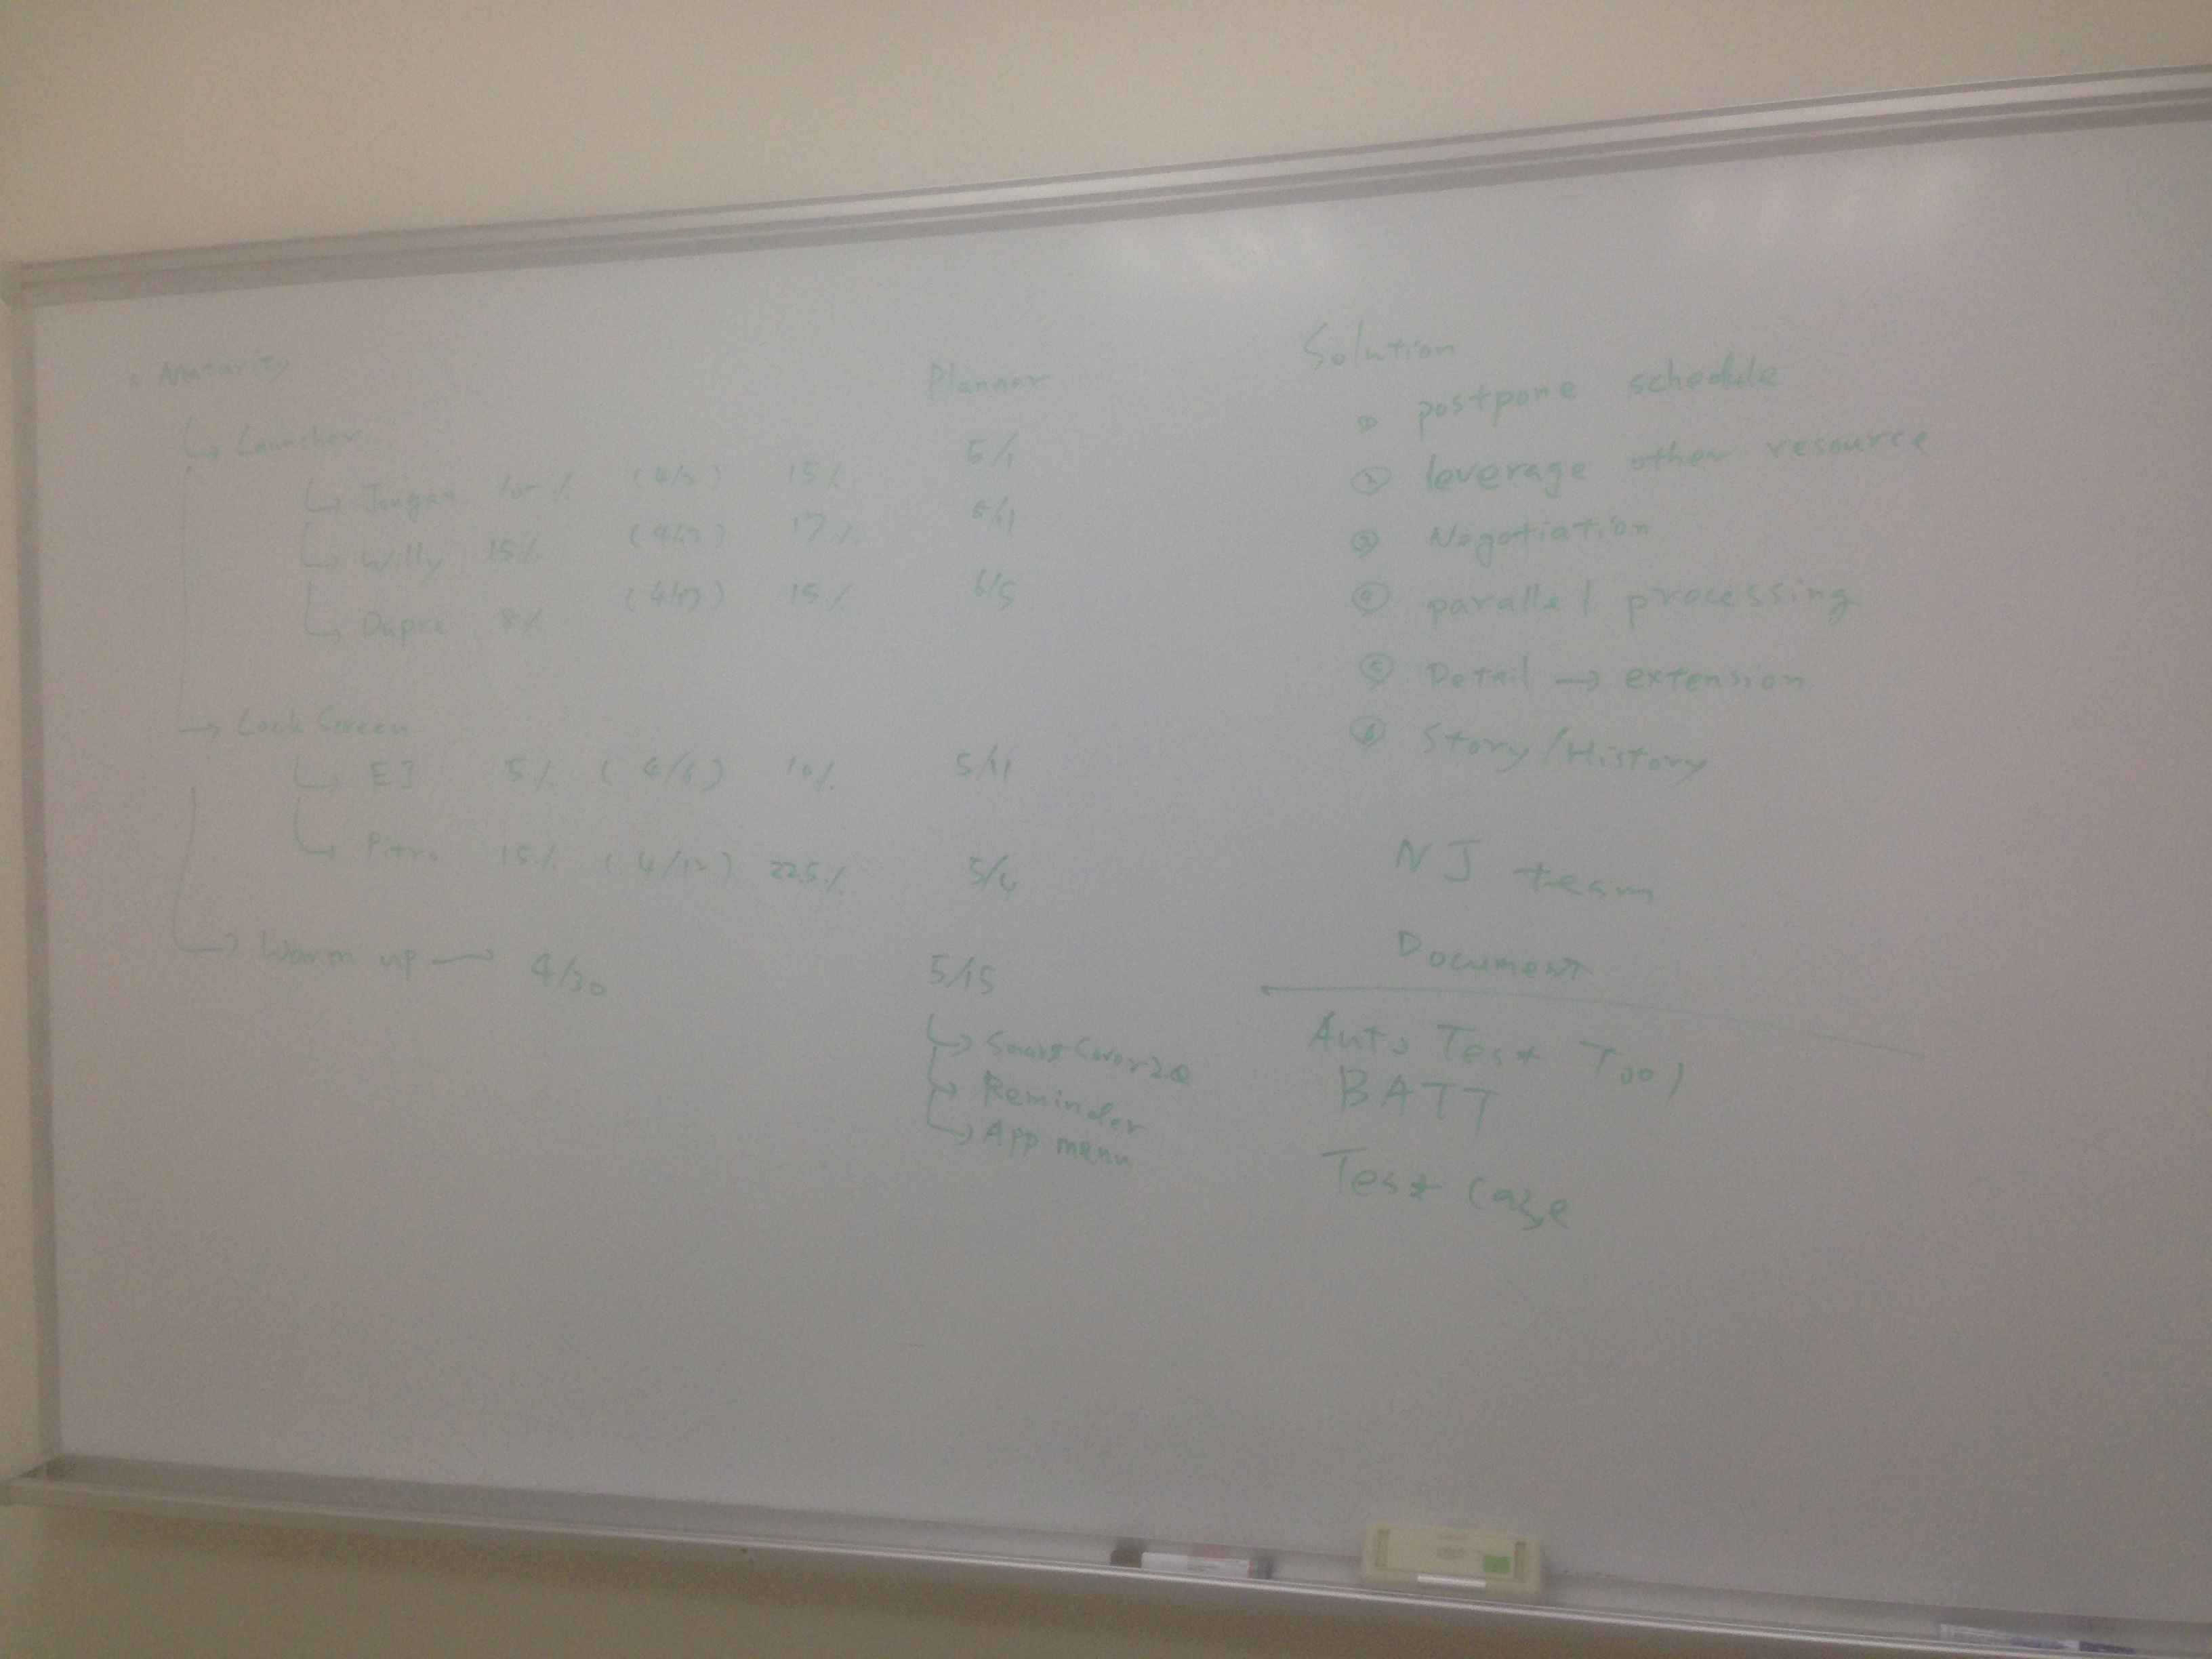 Maturity
Planner
↳ Launcher
↳ Jongan 15% 5/1
↳ Willy 15% 17% 5/1
↳ Dupre 8% (4/13) 15% 6/5
↳ Lock Screen
↳ EJ 5% (4/6) 10% 5/11
↳ Pitro 15% (4/12) 22.5% 5/4
↳ Warm up → 4/30 5/15
↳ Smart Cover
↳ Reminder
↳ App menu
Solution
① postpone schedule
② leverage other resource
③ Negotiation
④ parallel processing
⑤ Detail → extension
⑥ Story/History
NJ team
Document
Auto Test Tool
BATT
Test case